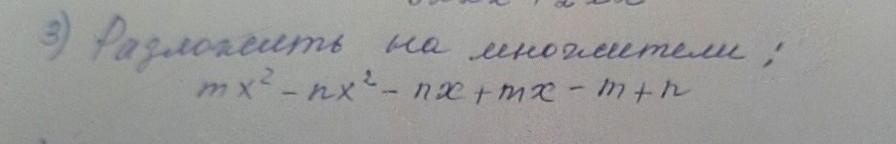 3) Разложить на множители:
mx² - nx² - nx + mx - m + n